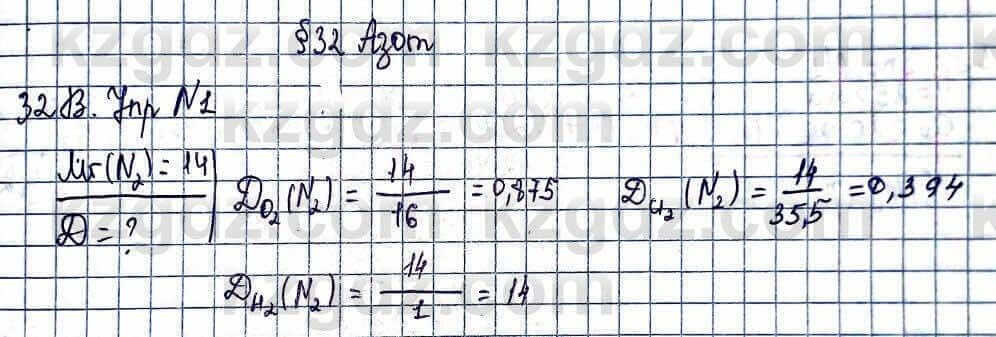 §32 Азот
32В. Упр №1
Mr(N₂) = 14
D = ?
D_O₂(N₂) = 14/16 = 0,875
D_Cl₂(N₂) = 14/35,5 = 0,394
D_H₂(N₂) = 14/1 = 14
kzgdz.com